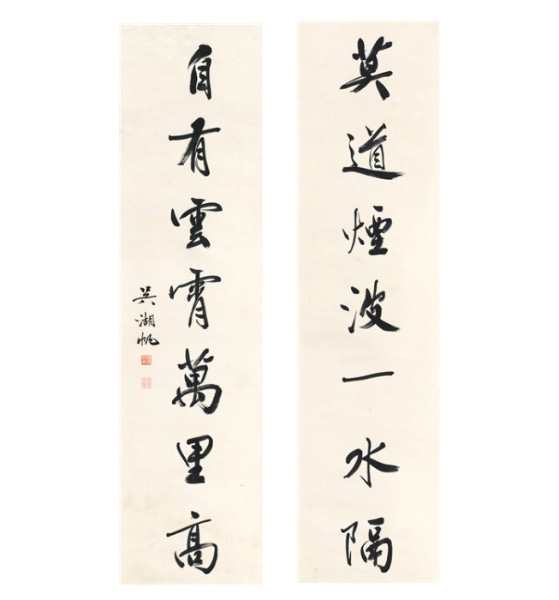 莫道煙波一水隔
自有雲霄萬里高
吳湖帆